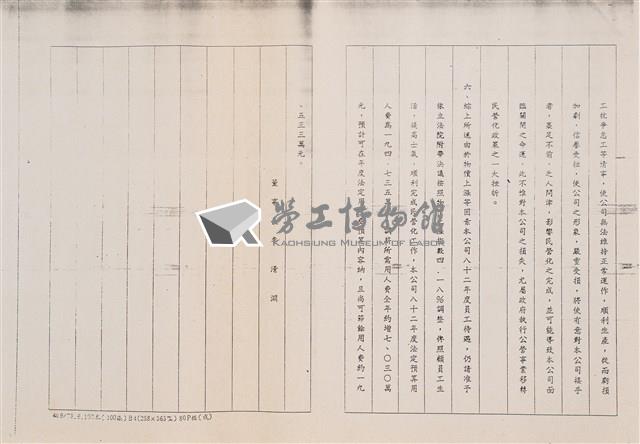 工抗爭怠工等情事，使公司無法維持正常運作，順利生產，從而虧損
加劇，信譽受挫，使公司之形象，嚴重受損，將使有意對本公司接手
者，裹足不前，乏人問津，影響民營化之完成，並可能導致本公司面
臨關閉之命運，此不惟對本公司之損失，尤屬政府執行公營事業移轉
民營化政策之一大挫折。
六、綜上所述由於物價上漲等因素本公司八十二年度員工待遇，仍請准予
依立法院附帶決議按照物價指數四．一八％調整，俾照顧員工生
活，提高士氣，順利完成民營化工作，本公司八十二年度法定預算用
人費為一九四、七三五萬 調薪所需用人費全年約增七、０三０萬
元，預計可在年度法定用 預算內容納，且尚可節餘用人費約一九
、五三三萬元。
董事長 清淵
勞工博物館
KAOHSIUNG MUSEUM OF LABOR